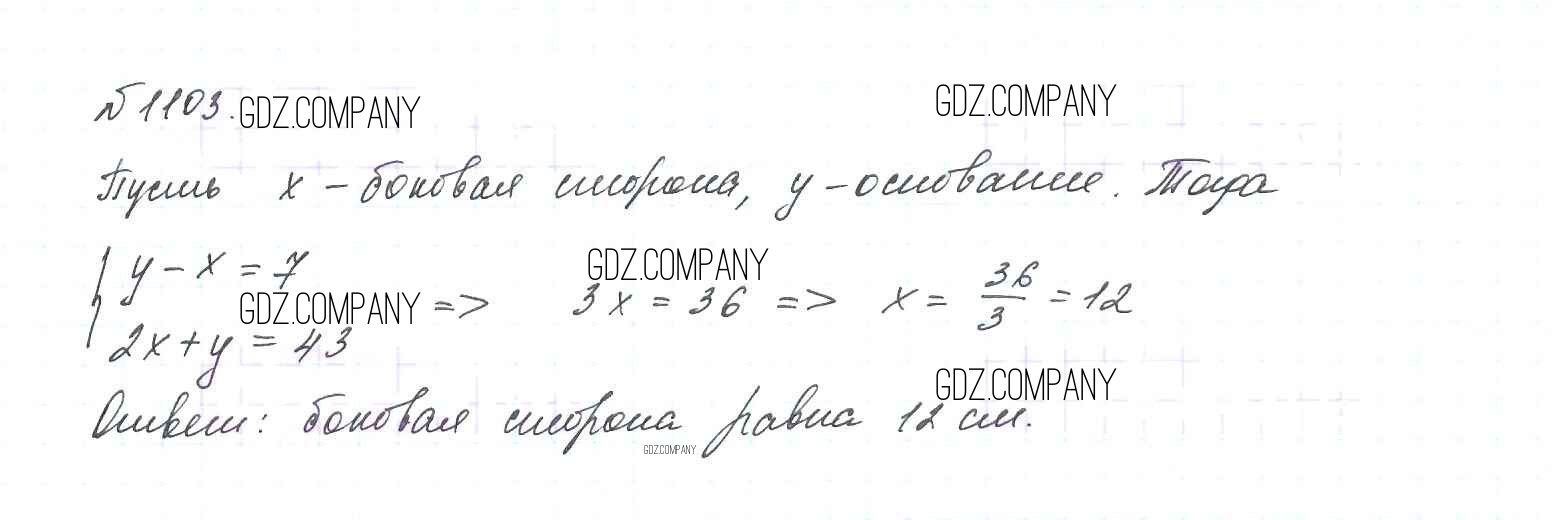 №1103. GDZ.COMPANY GDZ.COMPANY
Пусть x – боковая сторона, y – основание. Тогда
y – x = 7 GDZ.COMPANY
GDZ.COMPANY => 3x = 36 => x = 36/3 = 12
2x + y = 43
GDZ.COMPANY
Ответ: боковая сторона равна 12 см.
GDZ.COMPANY